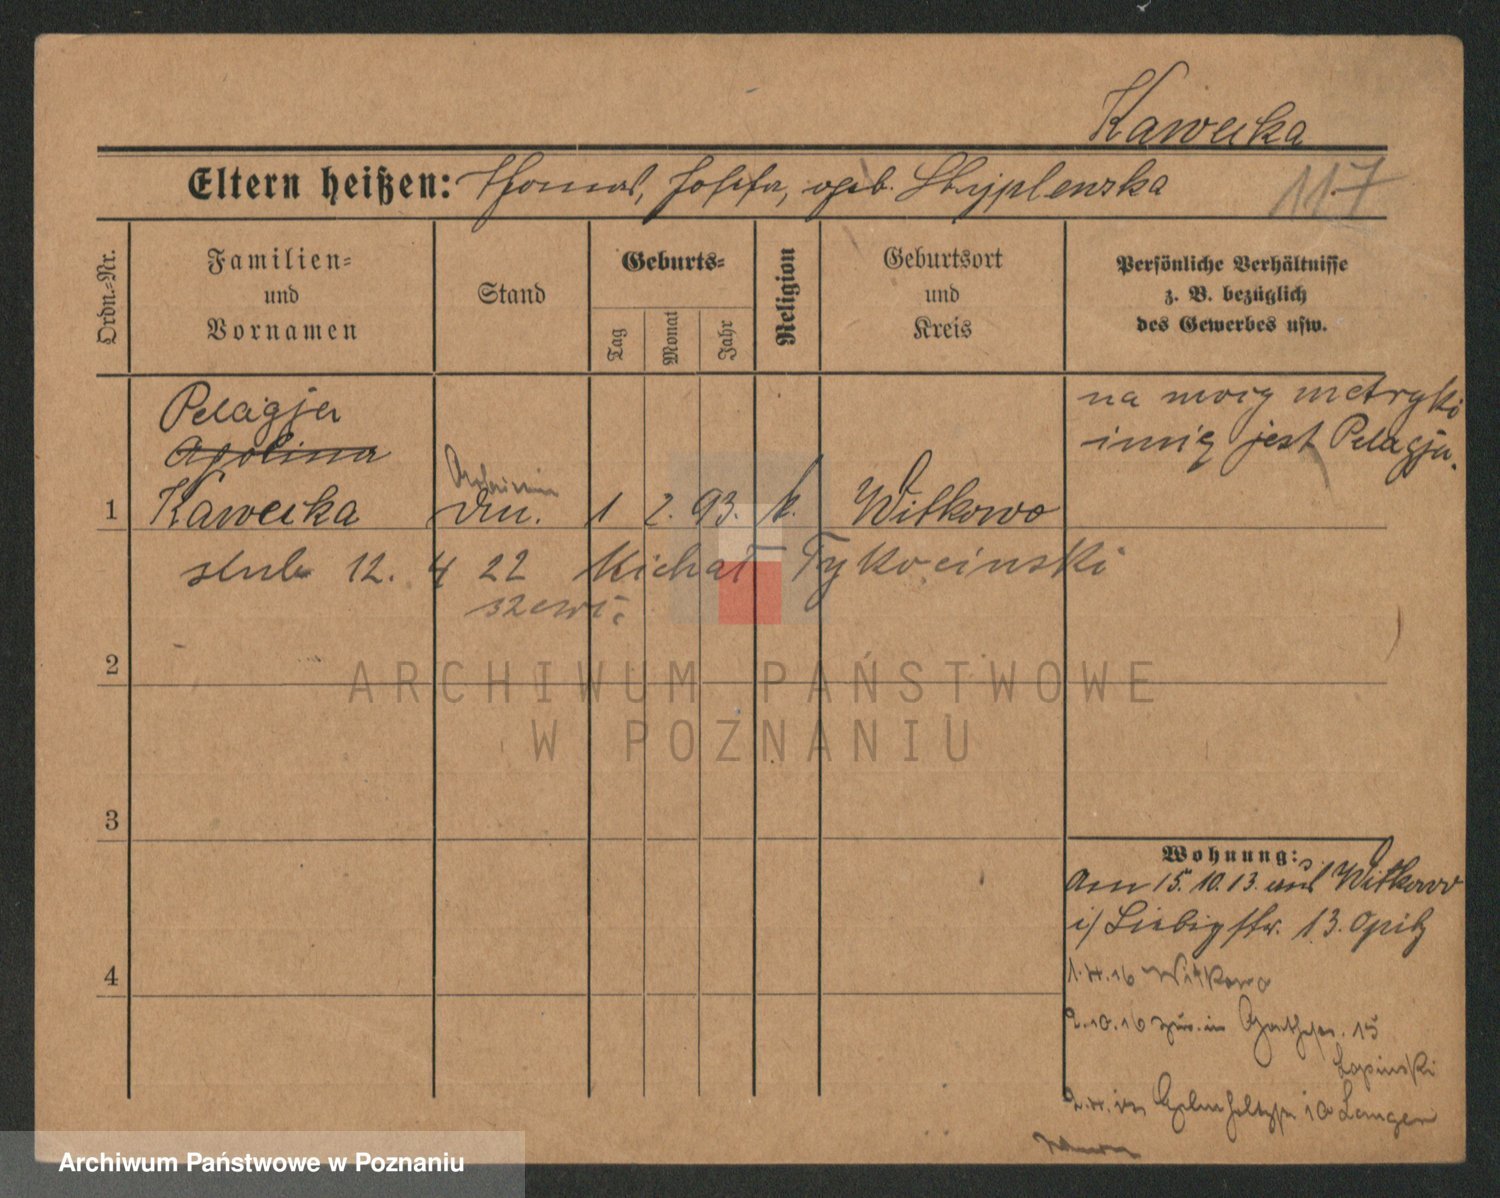 Kawecka
Eltern heißen: Thomas, Josefa, geb. Stryplenska
117
Ordn.-Nr.
Familien-
und
Vornamen
Stand
Geburts-
Tag
Monat
Jahr
Religion
Geburtsort
und
Kreis
Persönliche Verhältnisse
z. B. bezüglich
des Gewerbes usw.
Pelagja
Apolina
1 Kawecka 1 2. 93. k. Witkowo
na moiy metryki
imię jest Pelagja.
slub 12. 4 22 Michał Tykocinski
szewc
2
3
4
Wohnung:
Am 15. 10. 13. aus Witkowo
i/ Liebigstr. 13. Opitz
1.4.16 Witkowo
2.10.16 zur. in 15
Lopinski
Langer
ARCHIWUM PAŃSTWOWE
W POZNANIU
Archiwum Państwowe w Poznaniu